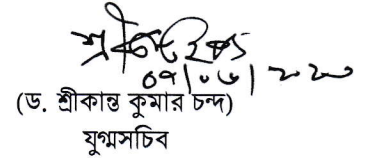 ০৭/০৬/২০২০
(ড. শ্রীকান্ত কুমার চন্দ)
যুগ্মসচিব